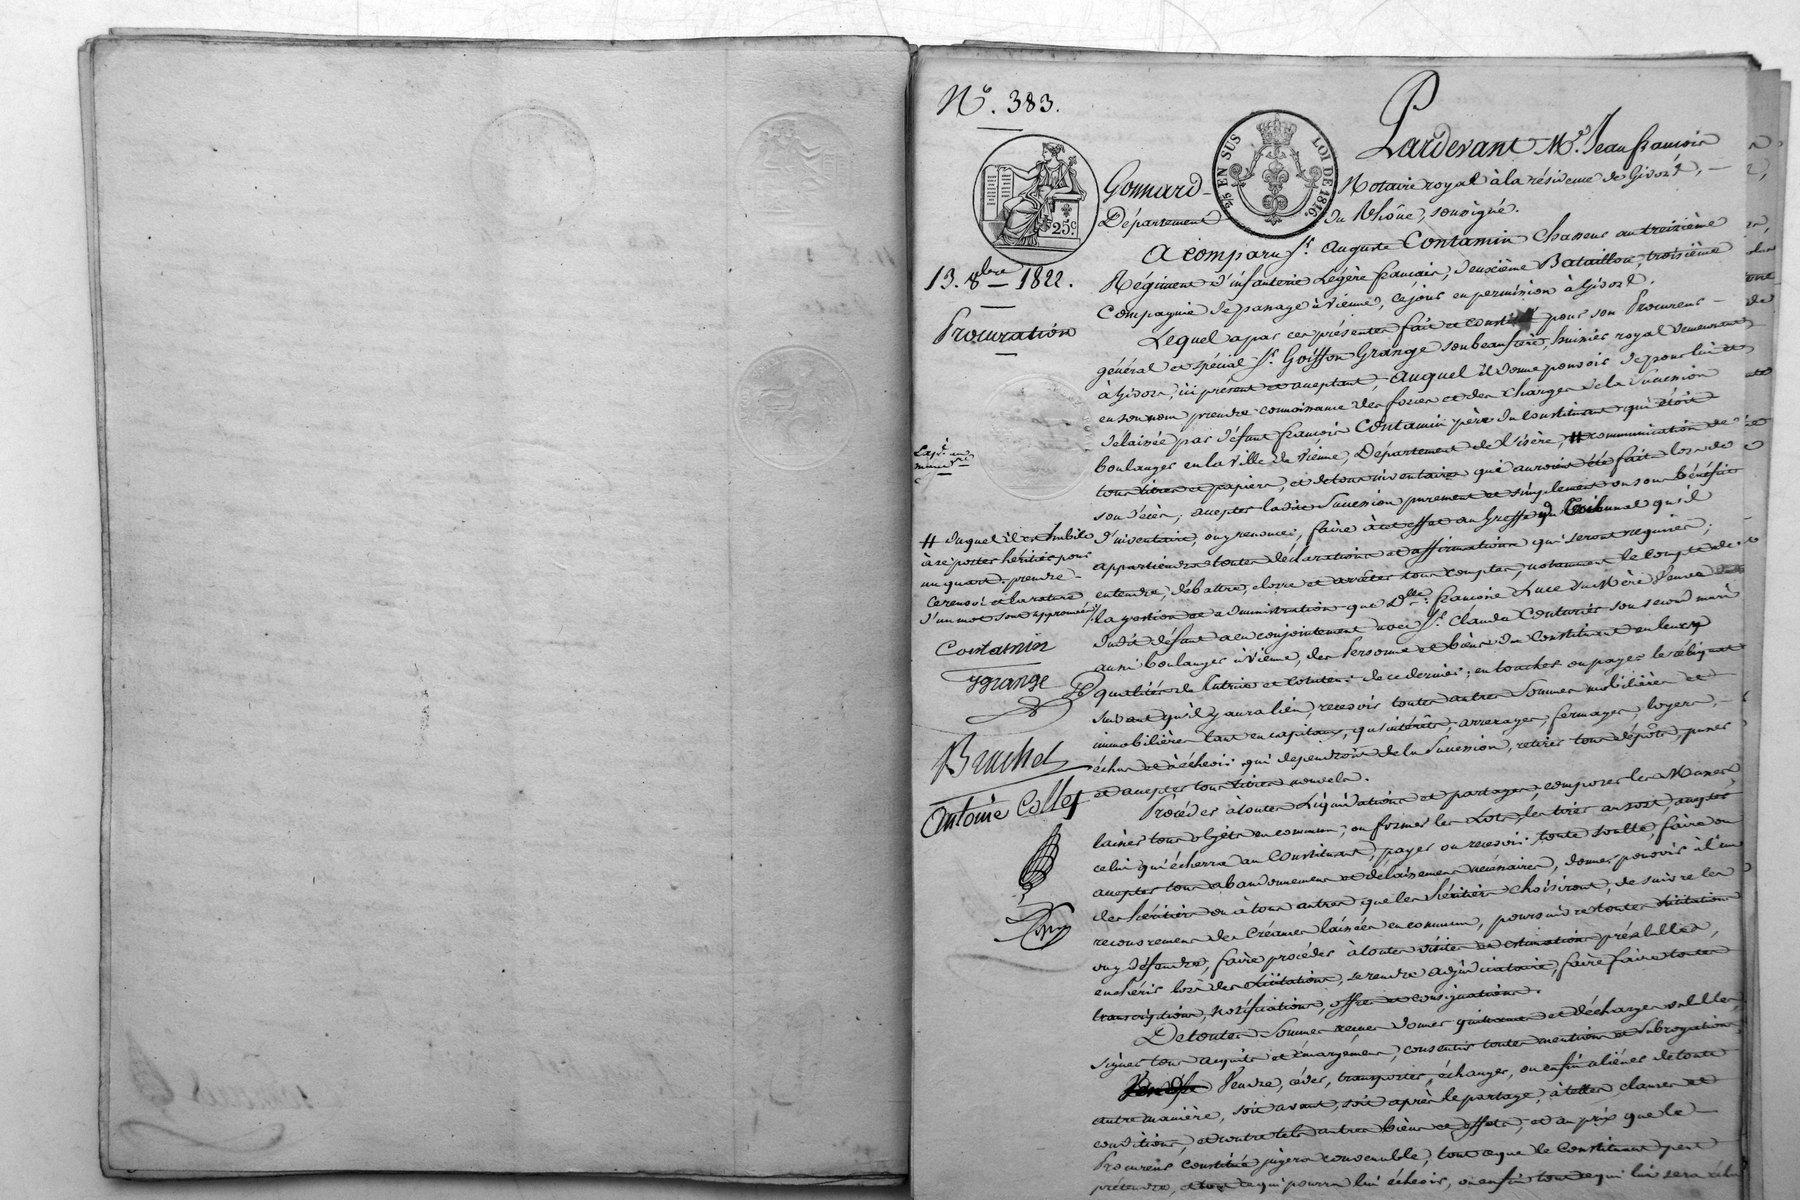 N.º 383.
Pardevant M.e Jean françois
Gonnard Notaire royal à la résidence de Givors,
Département du Rhône, soussigné.
5/2 EN SUS LOI DE 1816.
25 c.
13. 8bre 1822.
Procuration
A comparu Sr. Auguste Contamin chasseur au treizième
Régiment d'infanterie Légère français, deuxième Bataillon, troisième
Compagnie de passage à Vienne, ce jour en permission à Givors.
Lequel a par ces présentes fait et constitué pour son Procureur
général et spécial Sr. Goiffon Grange son beaufrère, huissier royal demeurant
à Givors, ici présent et acceptant, Auquel il donne pouvoir de pour lui et
en son nom prendre connoissance des forces et des charges de la succession
délaissée par défunt françois Contamin père du constituant qui étoit
boulanger en la ville de Vienne, Département de l'isère, # communication de
tous titres et papiers, et de tous inventaires qui auroient été fait lors de
son décès; accepter ladite succession purement et simplement ou sous bénéfice
d'inventaire, ou y renoncer, faire à cet effet au Greffe du Tribunal qu'il
appartiendra toutes déclarations et affirmations qui seront requises;
entendre, débattre, clorre et arrêter tous comptes, notamment le compte de
la gestion et administration que Dlle. françoise Luce sa Mère Veuve
dudit défunt a eu conjointement avec Sr. Claude Couturier son second mari
aussi boulanger à Vienne, des Personne et biens du Constituant en leurs
qualités de Tutrice et Cotuteur de ce dernier; en toucher ou payer le reliquat
suivant qu'il y aura lieu, recevoir toutes autres sommes mobilières et
immobilières tant en capitaux, qu'intérêts, arrérages, fermages, loyers,
échus et à échoir qui dépendront de la succession, retirer tous dépôts, passer
et accepter tous titres nouvels.
Procéder à toutes Liquidations et partages, composer les Masses
laisser tous objets en commun, ou former les Lots, les tirer au sort accepter
celui qui écherra au Constituant, payer ou recevoir toute soulte, faire ou
accepter tous abandonnemens et délaissemens nécessaires, donner pouvoir à l'un
des héritiers ou à tous autres que les héritiers choisiront, de suivre les
recouvremens des Créances laissées en commun, poursuivre toutes licitations
ou y défendre, faire procéder à toutes visites et estimations préalables,
enchérir lors des licitations, se rendre adjudicataire, faire faire toutes
transcriptions, notifications, offres et consignations.
De toutes Sommes reçues donner quittances et décharges valables,
signer tous acquits et émargemens, consentir toutes mentions et subrogations
Vendre, céder, transporter, échanger, ou enfin aliéner de toute
autre manière, soit avant, soit après le partage, à telles clauses et
conditions, et contre tels autres biens et effets, et au prix que le
Procureur constitué jugera convenable, tout ce que le Constituant peut
prétendre, et tout ce qui pourra lui échéoir, ou enfin tout ce qui lui sera échu
# duquel il est habile
à se porter héritier pour
un quart. prendre
Ce renvoi et la rature
d'un mot sont approuvés
Contamin
ggrange
Brachet
Antoine Collet